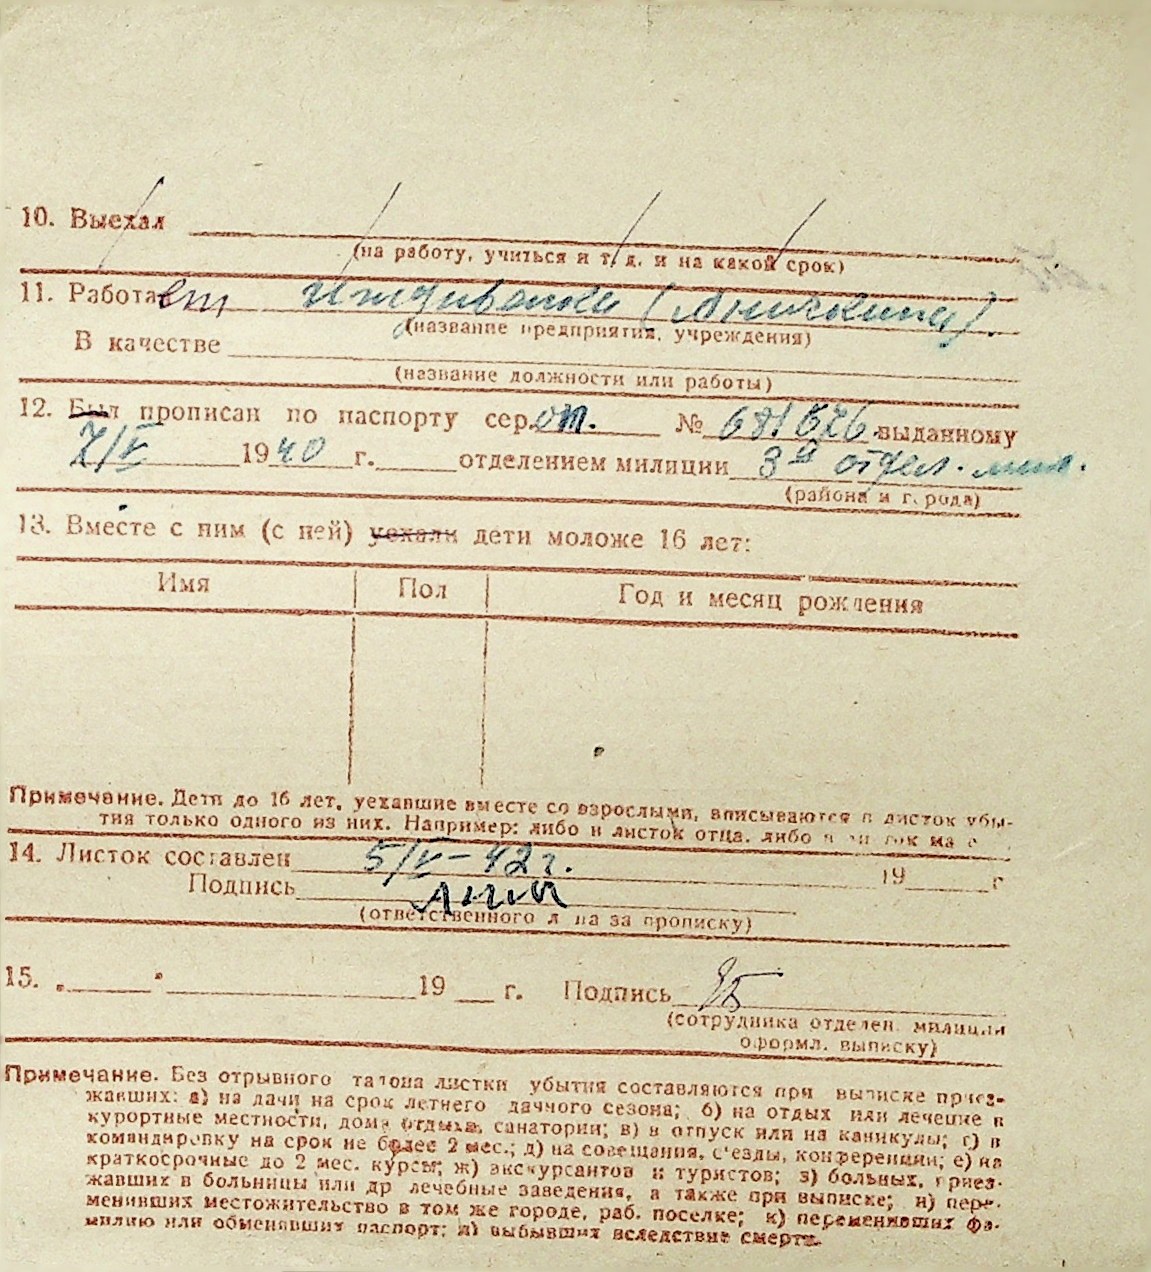 10. Выехал
(на работу, учиться и т. д. и на какой срок)
11. Работает иждивенка
(название предприятия, учреждения)
В качестве
(название должности или работы)
12. Был прописан по паспорту сер. от. № 681626 выданному
7/V 1940 г. отделением милиции 3й отдел. мил.
(района и города)
13. Вместе с ним (с ней) уехали дети моложе 16 лет:
Имя Пол Год и месяц рождения
Примечание. Дети до 16 лет, уехавшие вместе со взрослыми, вписываются в листок убы-
тия только одного из них. Например: либо в листок отца, либо в листок
14. Листок составлен 5/V-42 г. 19 г
Подпись
(ответственного лица за прописку)
15. „ " 19 г. Подпись
(сотрудника отделен. милиции
оформл. выписку)
Примечание. Без отрывного талона листки убытия составляются при выписке приез-
жавших: а) на дачи на срок летнего дачного сезона; б) на отдых или лечение в
курортные местности, дома отдыха, санатории; в) в отпуск или на каникулы; г) в
командировку на срок не более 2 мес.; д) на совещания, с'езды, конференции; е) на
краткосрочные до 2 мес. курсы; ж) экскурсантов и туристов; з) больных, приез-
жавших в больницы или др лечебные заведения, а также при выписке; и) пере-
менивших местожительство в том же городе, раб. поселке; к) переменивших фа-
милию или обменявших паспорт; л) выбывших вследствие смерти.